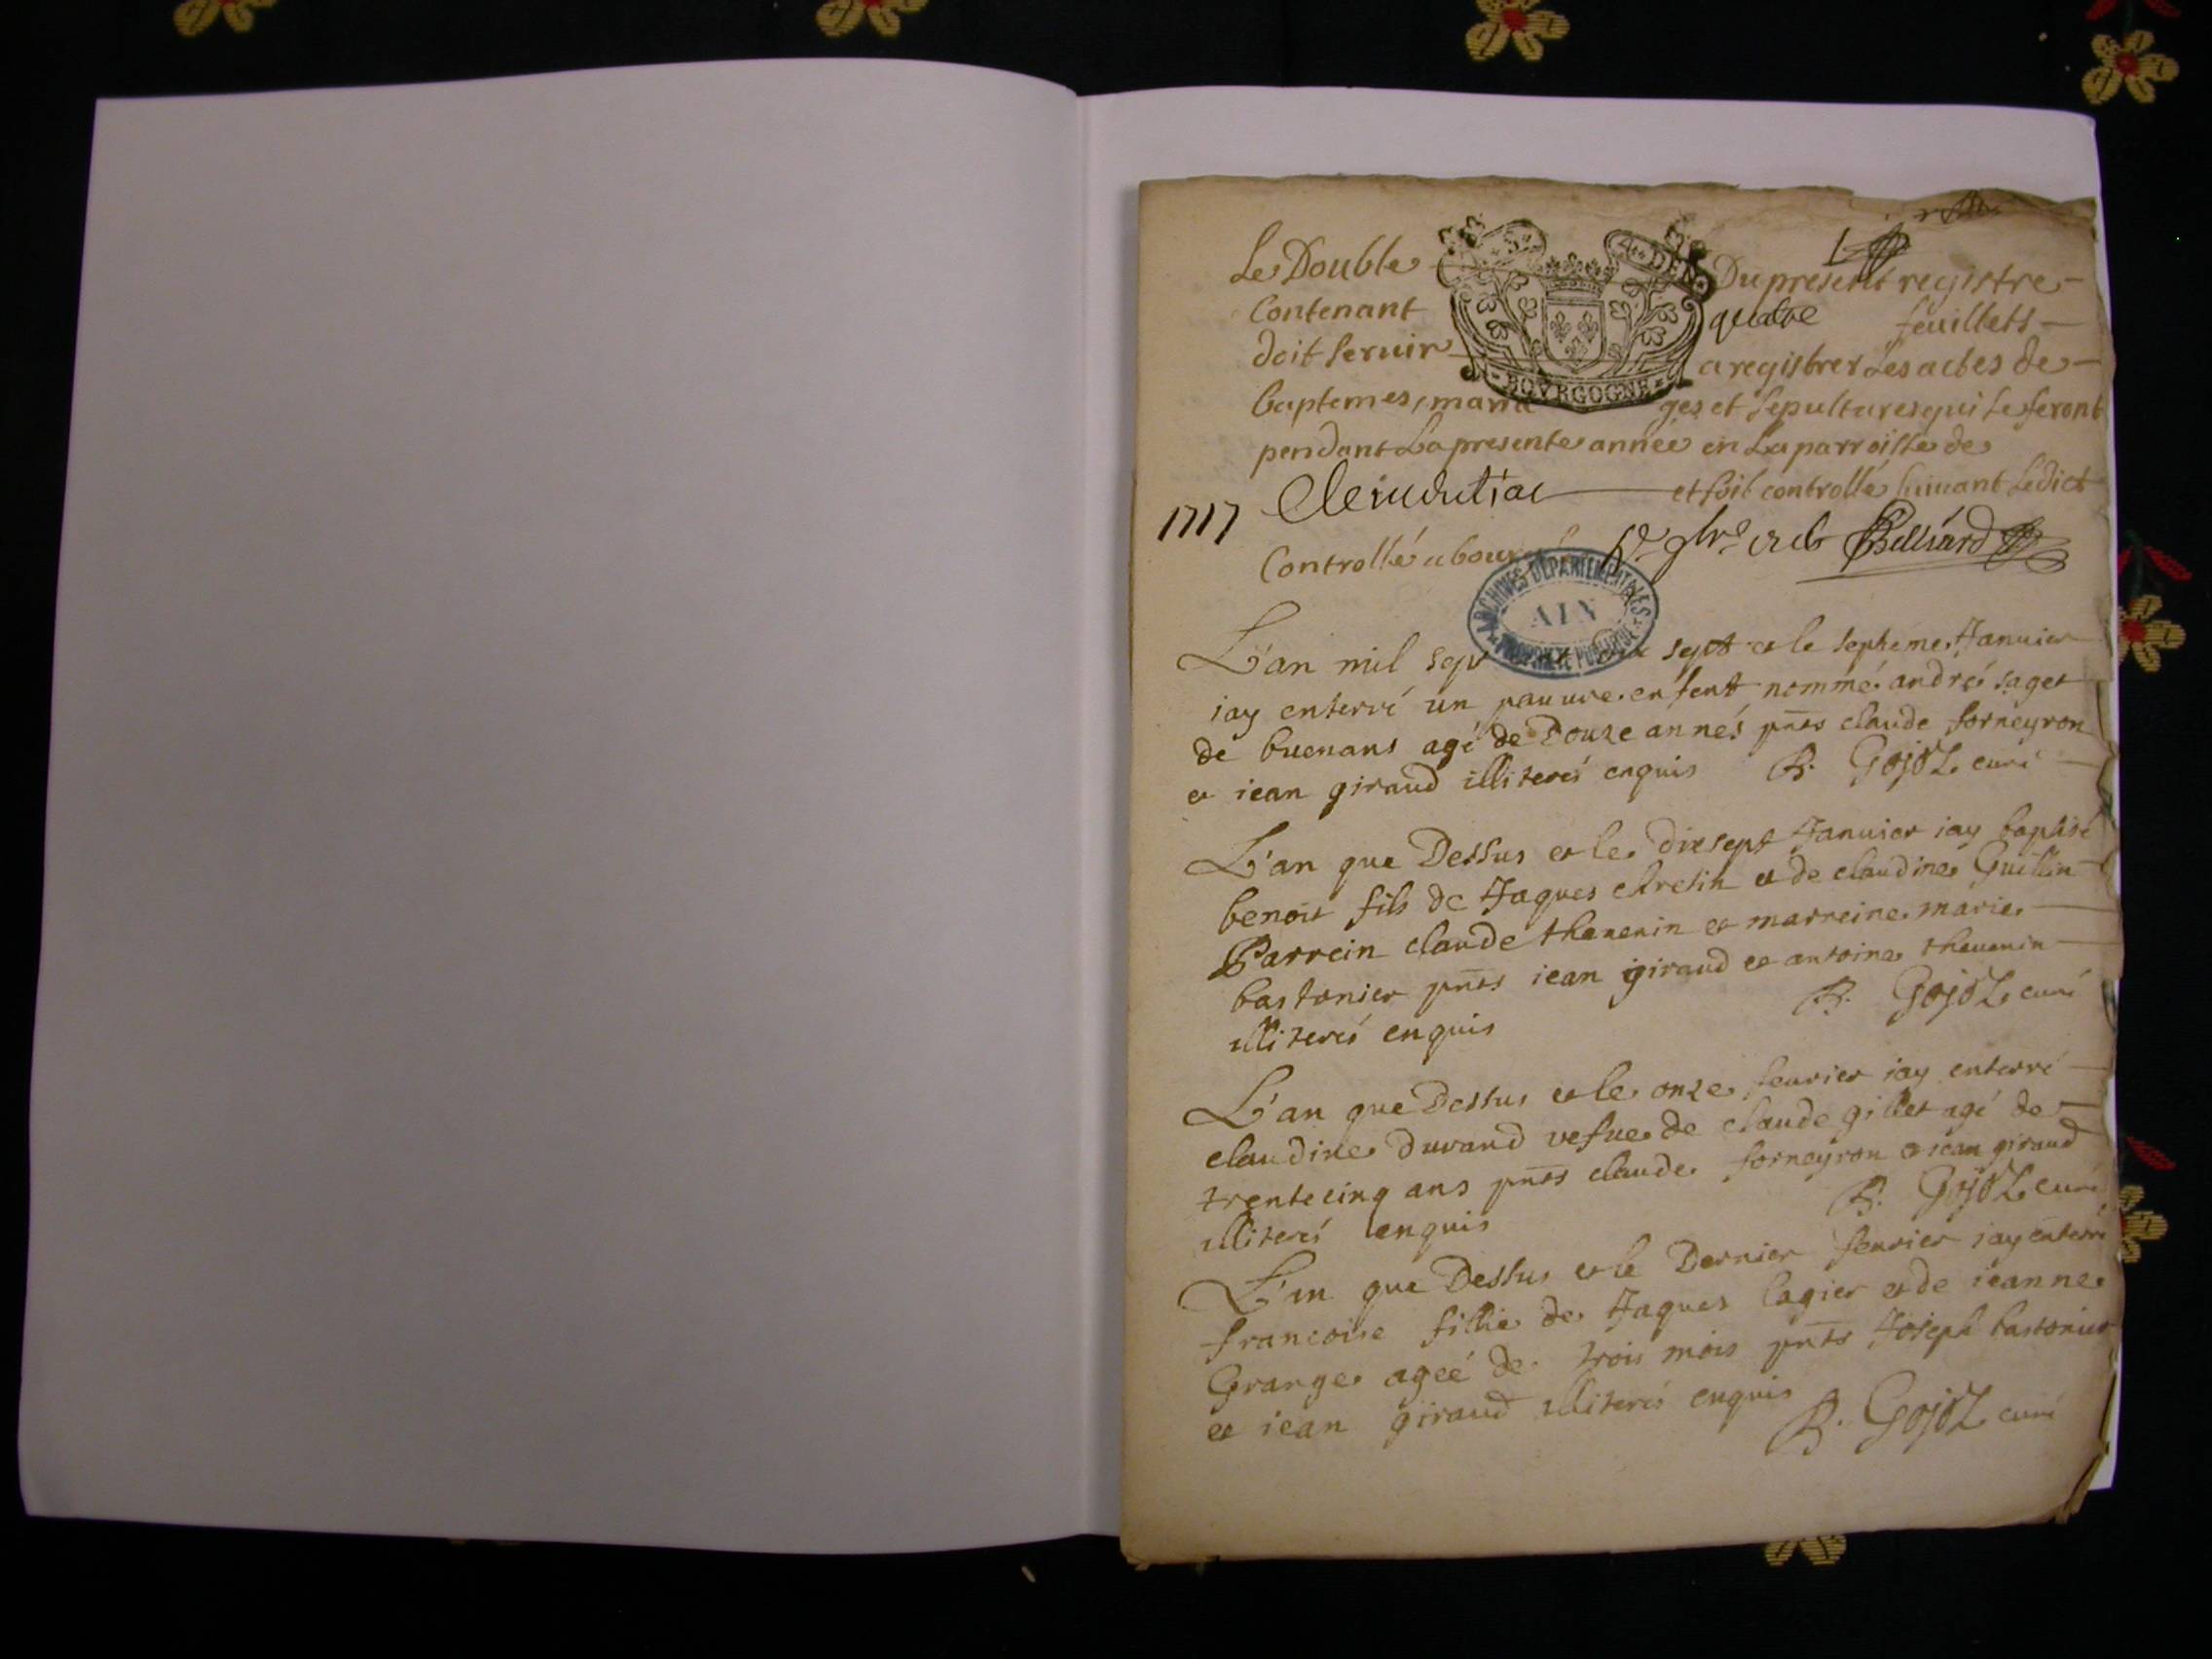 Le Double Du present registre
Contenant quatre feuillets
doit servir a registrer Les actes de
baptemes, maria ges et sepultures qui se feront
pendant La presente année en La parroisse de
et soit controllé suivant Ledict
1717
Controllé a bourg
4 DEN.
BOVRGOGNE
ARCHIVES DÉPARTEMENTALES
AIN
L'an mil sept sept et le septieme Januier
iay enterré un pauure enfent nommé andré saget
de buenans agé de Douze années pnts claude forneyron
et iean giraud illiterés enquis B. Gojoz curé
L'an que Dessus et le dixsept Januier iay baptisé
benoit fils de Jaques chresin et de claudine Guillin
Parrein claude theuenin et marreine marie
bastonier pnts iean giraud et antoine theuenin
illiterés enquis B. Gojoz curé
L'an que Dessus et le onze feurier iay enterré
claudine durand vefue de claude gillet agé de
trente cinq ans pnts claude forneyron et iean giraud
illiterés enquis B. Gojoz curé
L'an que Dessus et le Dernier feurier iay enterré
francoise fillie de Jaques lagier et de ieanne
Grange ageé de trois mois pnts Joseph bastonier
et iean giraud illiterés enquis
B. Gojoz curé